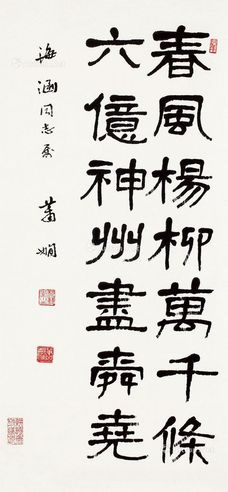 春風楊柳萬千條
六億神州盡舜堯
海涵同志屬
蕭嫻